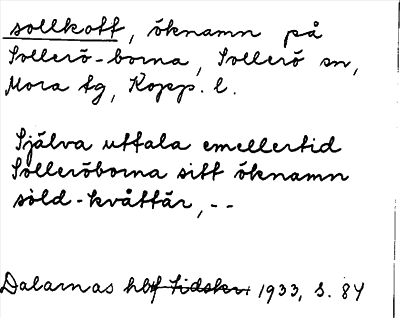 sollkott, öknamn på
Sollerö-borna, Sollerö sn,
Mora tg, Kopp. l.
Själva uttala emellertid
Solleröborna sitt öknamn
söld-kvåttär, --
Dalarnas hbf tidskr. 1933, s. 84